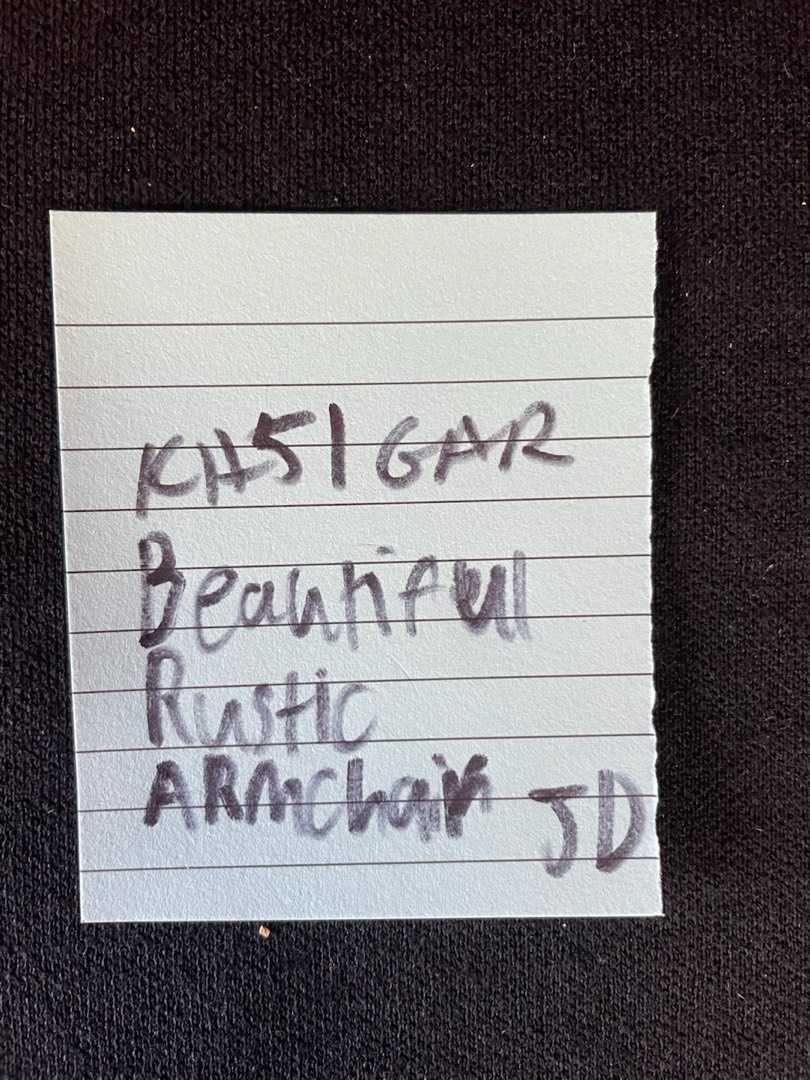 KH51 GAR
Beautiful
Rustic
ARmchair JD